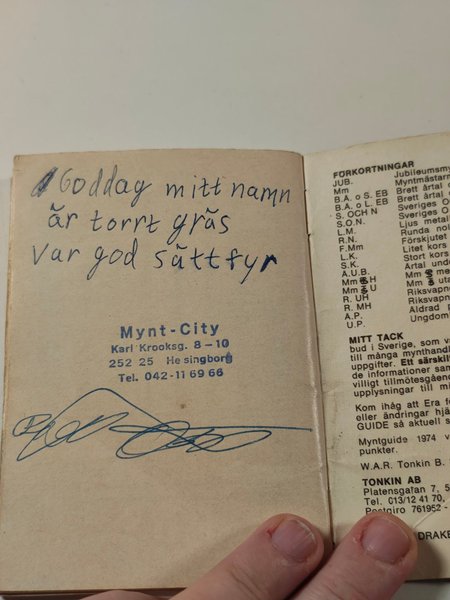 Goddag mitt namn
är torrt gräs
Var god sätt fyr
Mynt-City
Karl Krooksg. 8-10
252 25 Helsingborg
Tel. 042-11 69 66
FÖRKORTNINGAR
JUB. Jubileumsmy
Mm Myntmästarm
B.Ä. o S. EB Brett årtal o
B.Ä. o L. EB Brett årtal
S. OCH N Sveriges O
S.O.N. Sveriges
L.M. Ljus metal
R.N. Runda nol
F.M. Förskjutet
L.K. Litet kors
S.K. Stort kors
Å.U.B. Årtal unde
Mm H Mm me
Mm U Mm uta
R. UH Riksvapn
R. MH Riksvapn
A.P. Äldrad
U.P. Ungdom
MITT TACK
bud i Sverige, som v
till många mynthandl
uppgifter. Ett särskil
de informationer sam
villigt tillmötesgåen
upplysningar till mi
Kom ihåg att Era f
eller ändringar hjä
GUIDE så aktuell s
Myntguide 1974 v
punkter.
W.A.R. Tonkin B.
TONKIN AB
Platensgatan 7, 5
Tel. 013/12 41 70,
Postgiro 761952 -
DRAKE